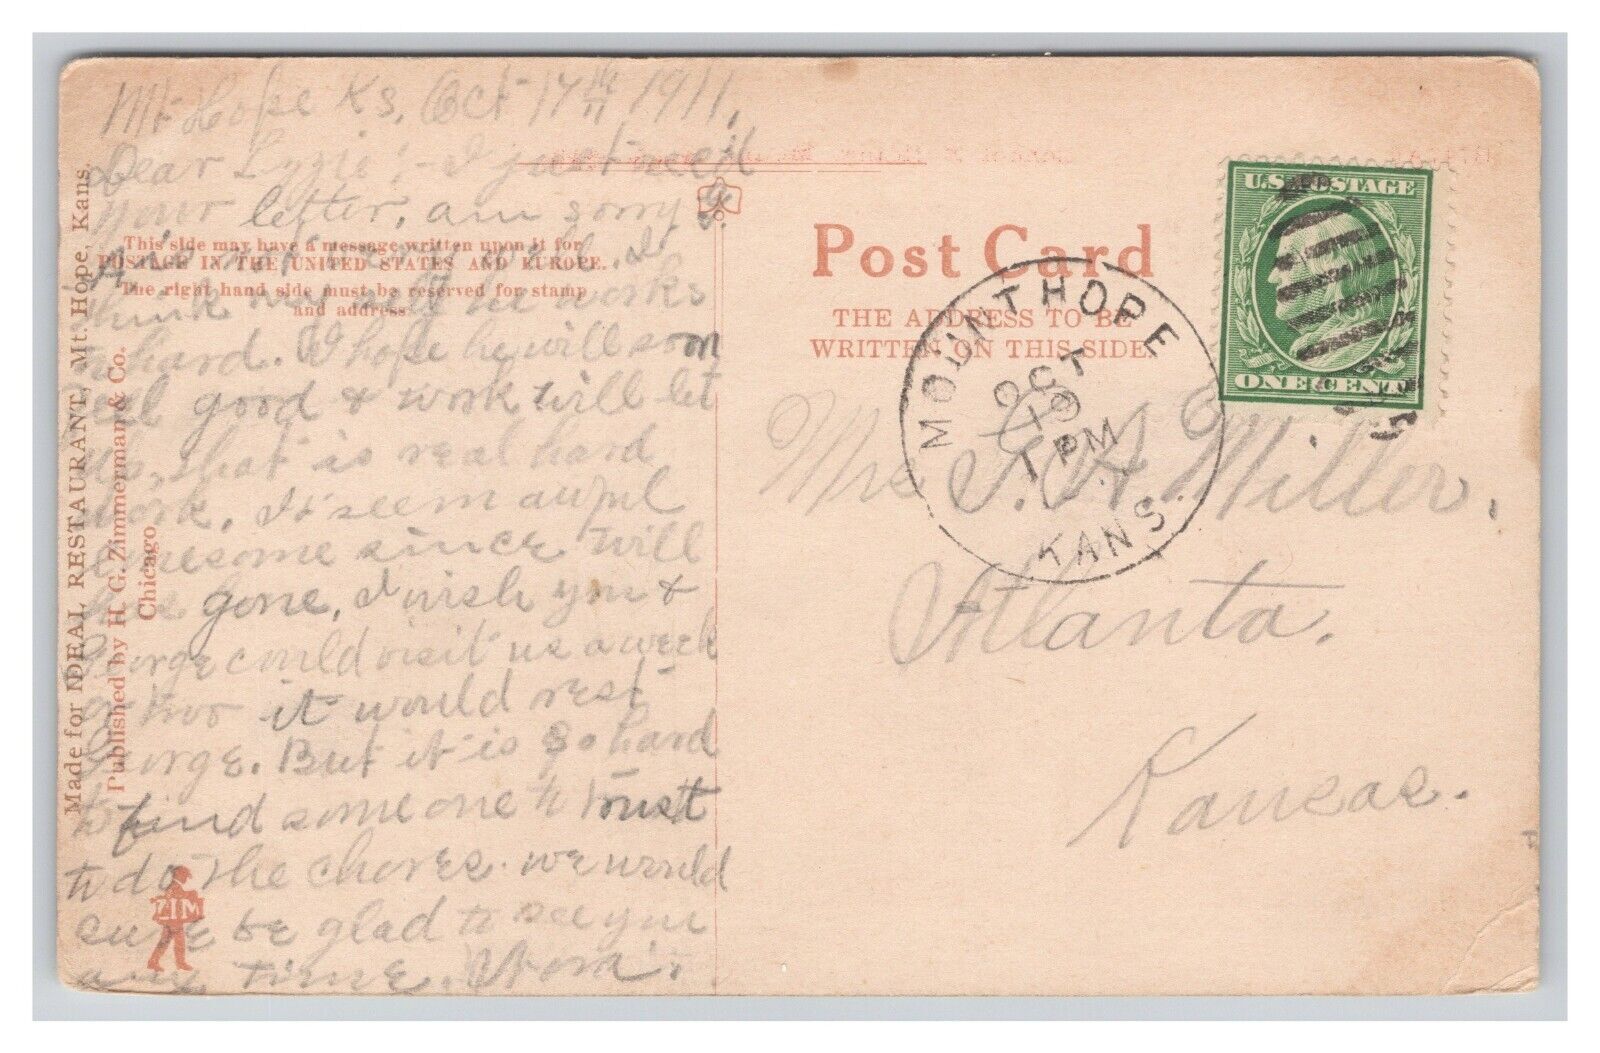 Mt Hope Ks, Oct 17th 1911,
Dear Lizzie:- I just rec'd
your letter, am sorry G.
is not feeling well. I
think he works
to hard. I hope he will soon
feel good & work will let
up, that is real hard
work. It seem awful
lonesome since Will
has gone, I wish you &
George could visit us a week
or two it would rest
George. But it is so hard
to find some one to trust
to do the chores. we would
sure be glad to see you
any time. Nora.
This side may have a message written upon it for
POSTAGE IN THE UNITED STATES AND EUROPE.
The right hand side must be reserved for stamp
and address
Made for IDEAL RESTAURANT, Mt. Hope, Kans.
Published by H. G. Zimmerman & Co.
Chicago
ZIM
Post Card
THE ADDRESS TO BE
WRITTEN ON THIS SIDE
U.S. POSTAGE
ONE CENT
MOUNT HOPE
OCT
1 PM
KANS.
Mrs G. A Miller,
Atlanta,
Kansas.